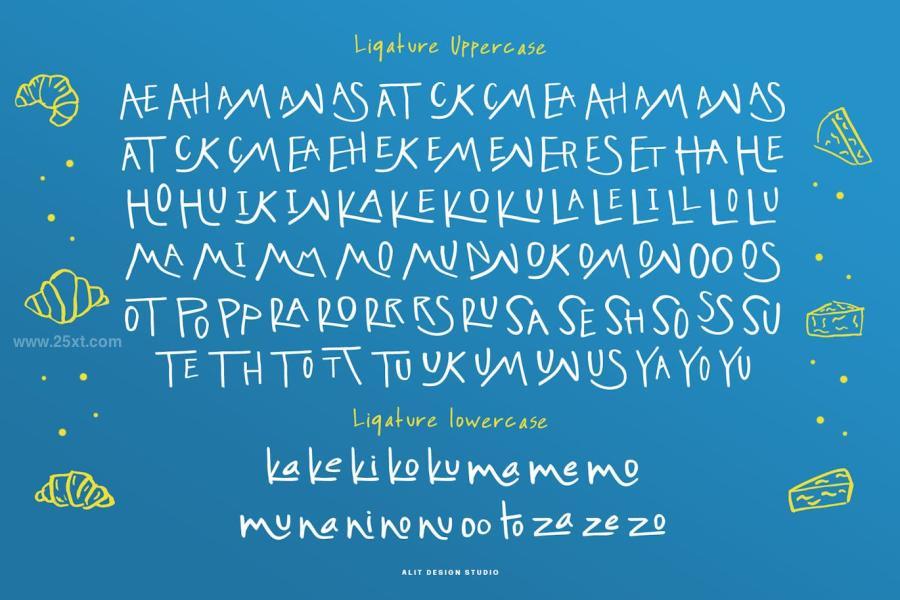 Ligature Uppercase
AE AH AM AN AS AT CK CM EA AH AM AN AS
AT CK CM EA EH EK EM EN ER ES ET HA HE
HO HU IK IN KA KE KO KU LA LE LI LL LO LU
MA MI MM MO MU NN OK OM ON OO OS
OT PO PP RA RO RR RS RU SA SE SH SO SS SU
TE TH TO TT TU UK UM UN US YA YO YU
www.25xt.com
Ligature lowercase
ka ke ki ko ku ma me mo
mu na ni no nu oo to za ze zo
ALIT DESIGN STUDIO